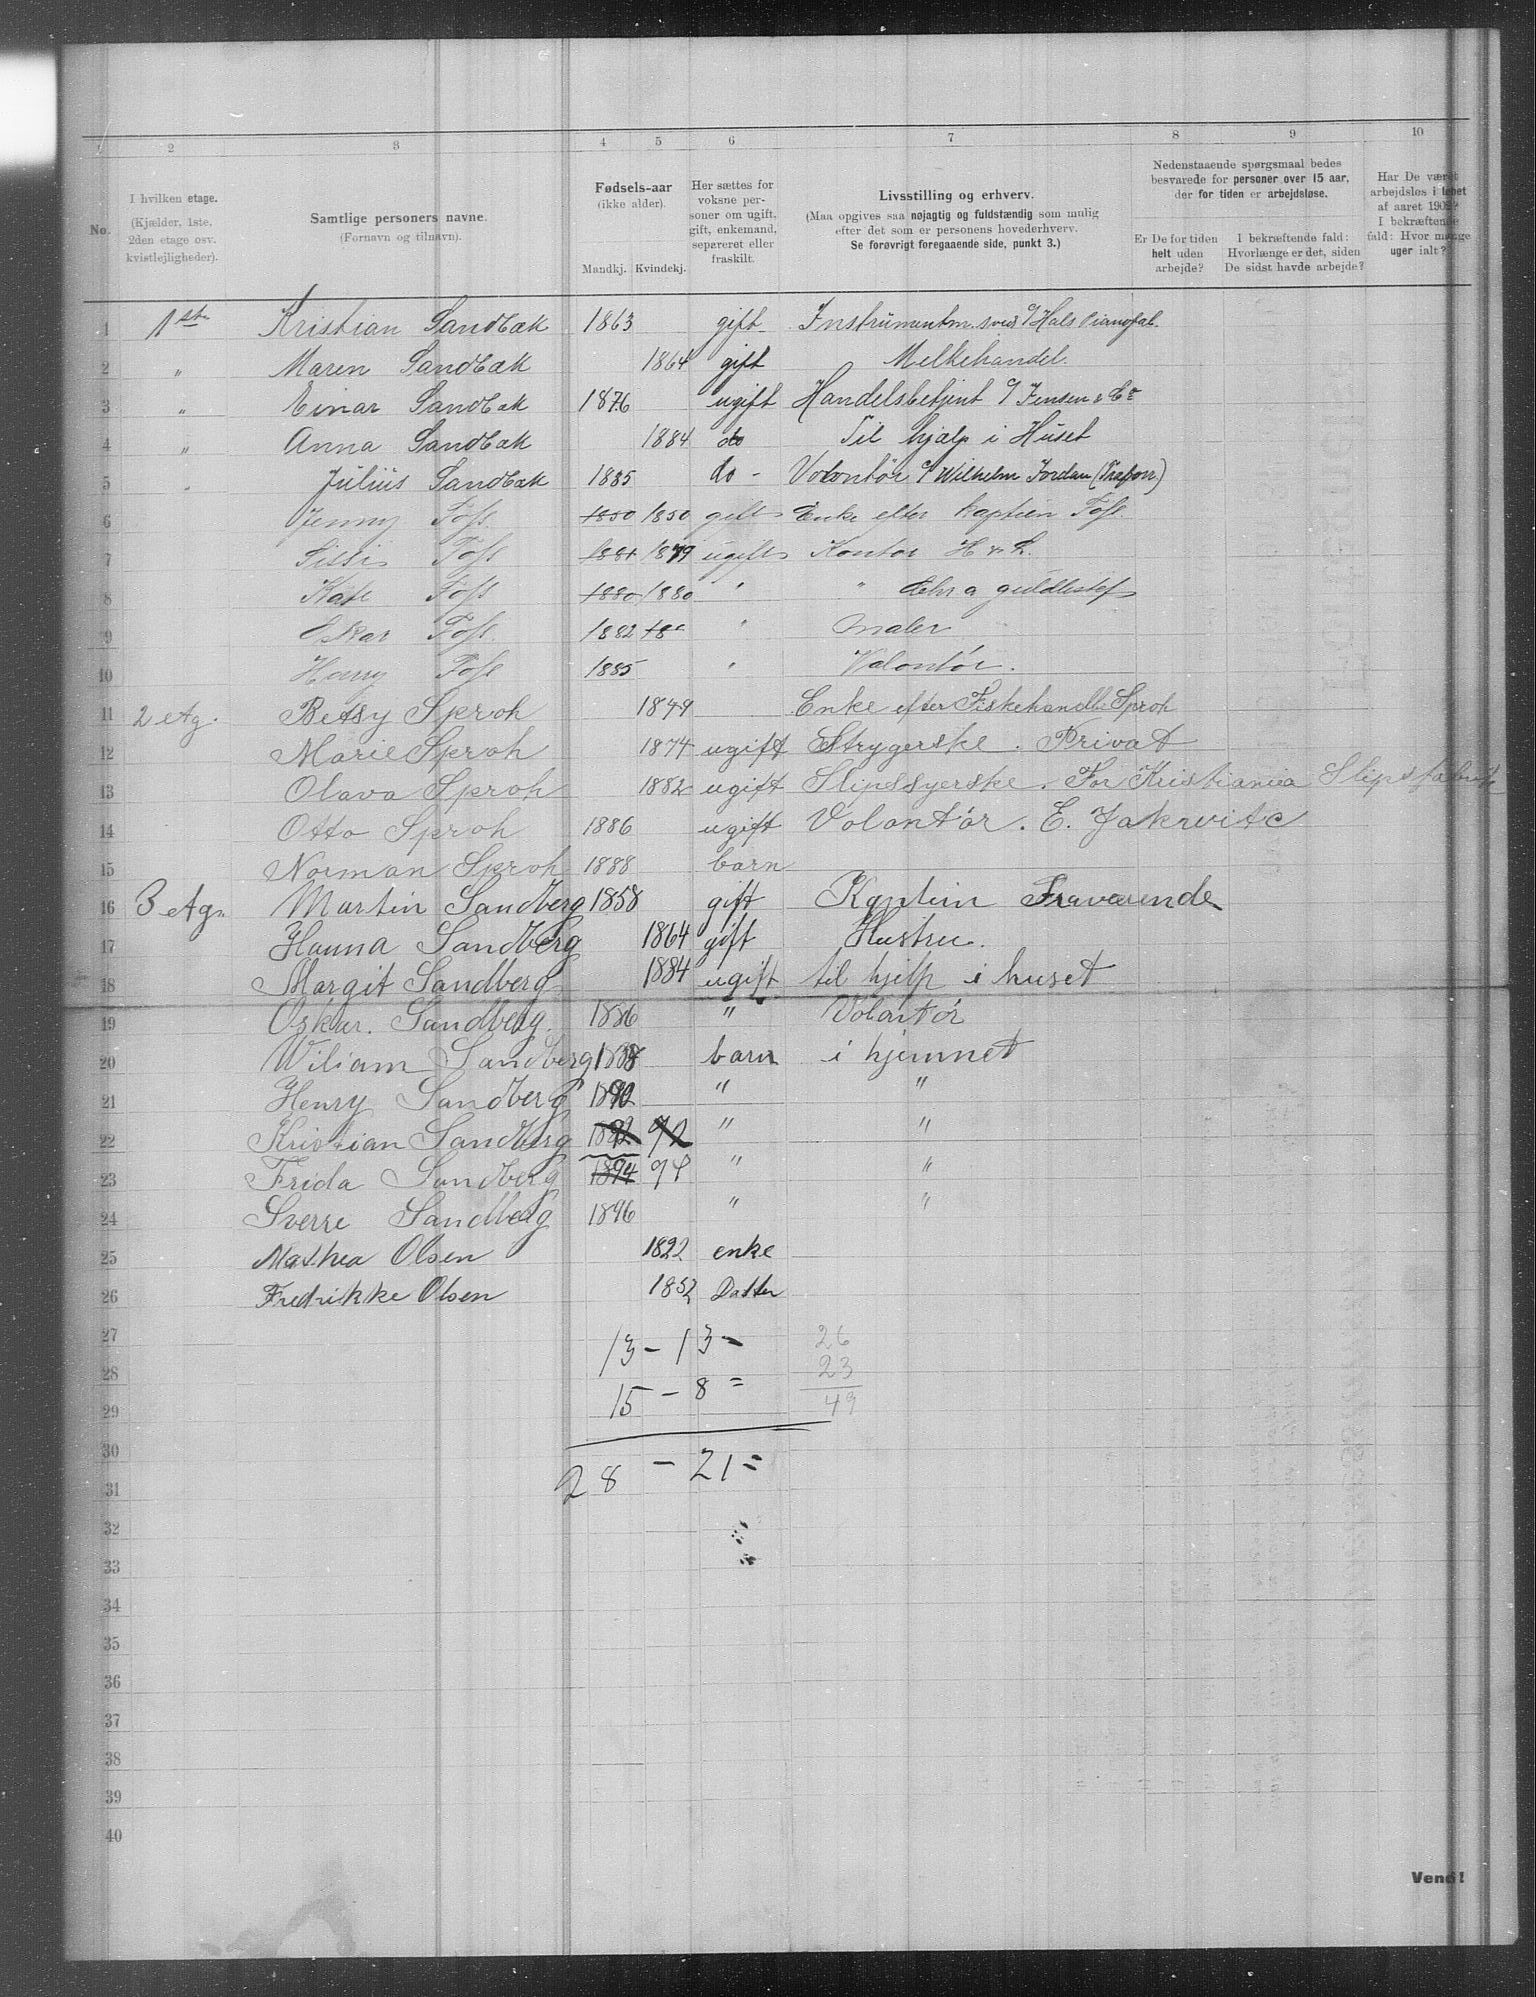 1 2 3 4 5 6 7 8 9 10
No.
I hvilken etage. (Kjælder, 1ste, 2den etage osv. kvistlejligheder).
Samtlige personers navne. (Fornavn og tilnavn).
Fødsels-aar (ikke alder). Mandkj. Kvindekj.
Her sættes for voksne personer om ugift, gift, enkemand, separeret eller fraskilt.
Livsstilling og erhverv. (Maa opgives saa nøjagtig og fuldstændig som mulig efter det som er personens hovederhverv. Se forøvrigt foregaaende side, punkt 3.)
Nedenstaaende spørgsmaal bedes besvarede for personer over 15 aar, der for tiden er arbejdsløse.
Er De for tiden helt uden arbejde?
I bekræftende fald: Hvorlænge er det, siden De sidst havde arbejde?
Har De været arbejdsløs i løbet af aaret 1902? I bekræftende fald: Hvor mange uger ialt?
1 1ste Kristian Sandbæk 1863 gift Instrumentm. sved c/ Hals Pianofab.
2 " Maren Sandbæk 1864 gift Melkehandel.
3 " Einar Sandbæk 1876 ugift Handelsbetjent c/ Jensen & Co
4 " Anna Sandbæk 1884 do Til hjælp i Huset
5 " Julius Sandbæk 1885 do - Volontør c/ Wilhelm Jordan
6 Jenny Foss 1850 1850 gift Enke efter Kaptein Foss
7 Sissi Foss 1881 1879 ugift Kontor
8 Kate Foss 1880 1880 " "
9 Oskar Foss 1882 18 " maler
10 Harry Foss 1885 " Volontør.
11 2 etg. Betsy Sproh 1849 Enke efter Fiskehandler Sproh
12 Marie Sproh 1874 ugift Strygerske. Privat
13 Olava Sproh 1882 ugift Slipssyerske. For Kristiania Slipsfabrik
14 Otto Sproh 1886 ugift Volontør. E. Jakrvitc
15 Norman Sproh 1888 barn
16 3 etg. Martin Sandberg 1858 gift Kaptein Fraværende
17 Hanna Sandberg 1864 gift Hustru.
18 Margit Sandberg 1884 ugift til hjelp i huset
19 Oskar. Sandberg. 1886 " Volontør
20 Wiliam Sandberg 1888 barn i hjemmet
21 Henry Sandberg 1890 " "
22 Kristian Sandberg 1892 92 " "
23 Frida Sandberg 1894 94 " "
24 Sverre Sandberg 1896 " "
25 Mathea Olsen 1822 enke
26 Fredrikke Olsen 1852 Datter
27 13 - 13 - 26
28 15 - 8 = 23
29 49
30 28 - 21 =
31
32
33
34
35
36
37
38
39
40
Vend!